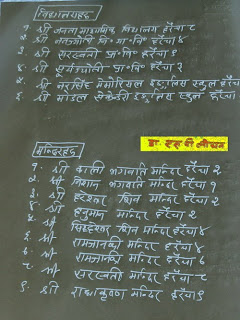 विद्यालयहरु
१. श्री जनता माध्यमिक विद्यालय हरैंचा ८
२. श्री नवज्योति नि॰ मा॰ वि॰ हरैंचा ४
३. श्री सरस्वती प्रा॰ वि॰ हरैंचा ९
४. श्री सूर्यज्योती प्रा॰ वि॰ हरैंचा २
५. श्री नरसिंह मेमोरियल इङ्लिस स्कुल हरैंचा
६. श्री मोडल सेकेण्डरी इङ्लिस स्कुल हरैंचा
डा. एस डी लोचन
मन्दिरहरु
१. श्री काली भगवति मन्दिर हरैंचा २
२. श्री भगवति मन्दिर हरैंचा १
३. श्री हरेश्वर शिव मन्दिर हरैंचा २
४. श्री हनुमान मन्दिर हरैंचा २
५. श्री सिद्धेश्वर शिव मन्दिर हरैंचा ४
६. श्री रामजानकी मन्दिर हरैंचा ४
७. श्री रामजानकी मन्दिर हरैंचा ६
८. श्री सरस्वती मन्दिर हरैंचा ८
९. श्री राधाकृष्ण मन्दिर हरैंचा ९